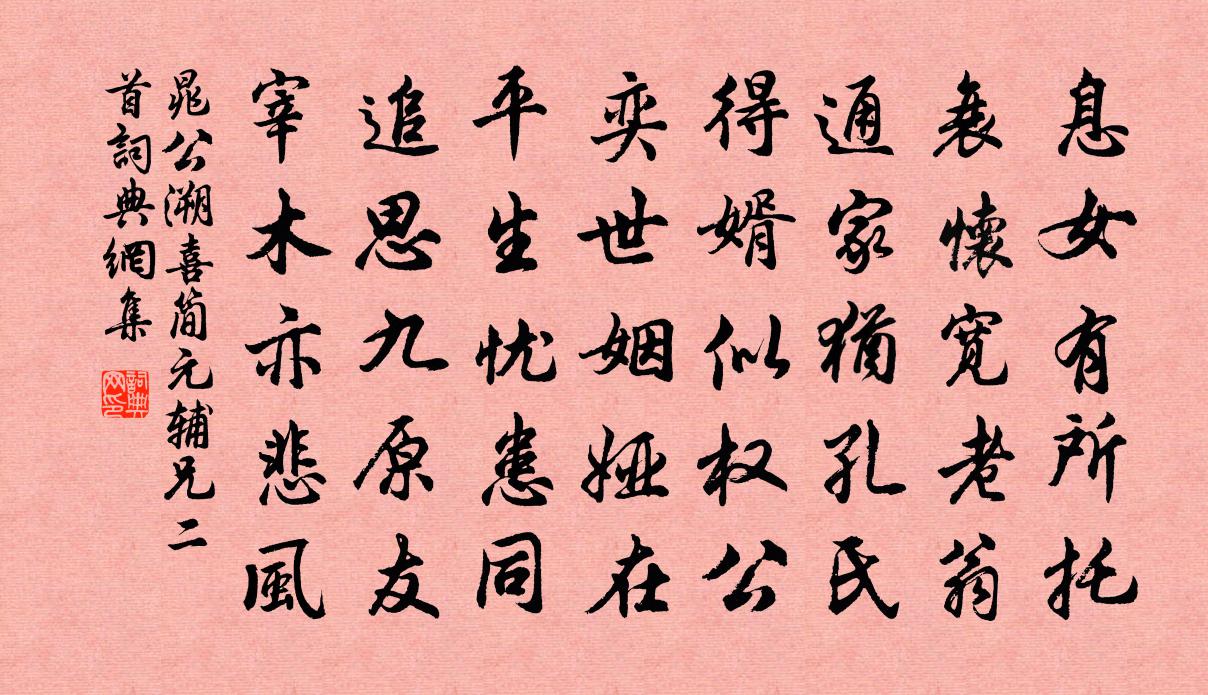 息女有所托
衰懷寬老翁
通家猶孔氏
得婿似权公
奕世姻娅在
平生忧患同
追思九原友
宰木亦悲風
晁公溯喜简元辅兄二
首詞典網集
詞典
网印